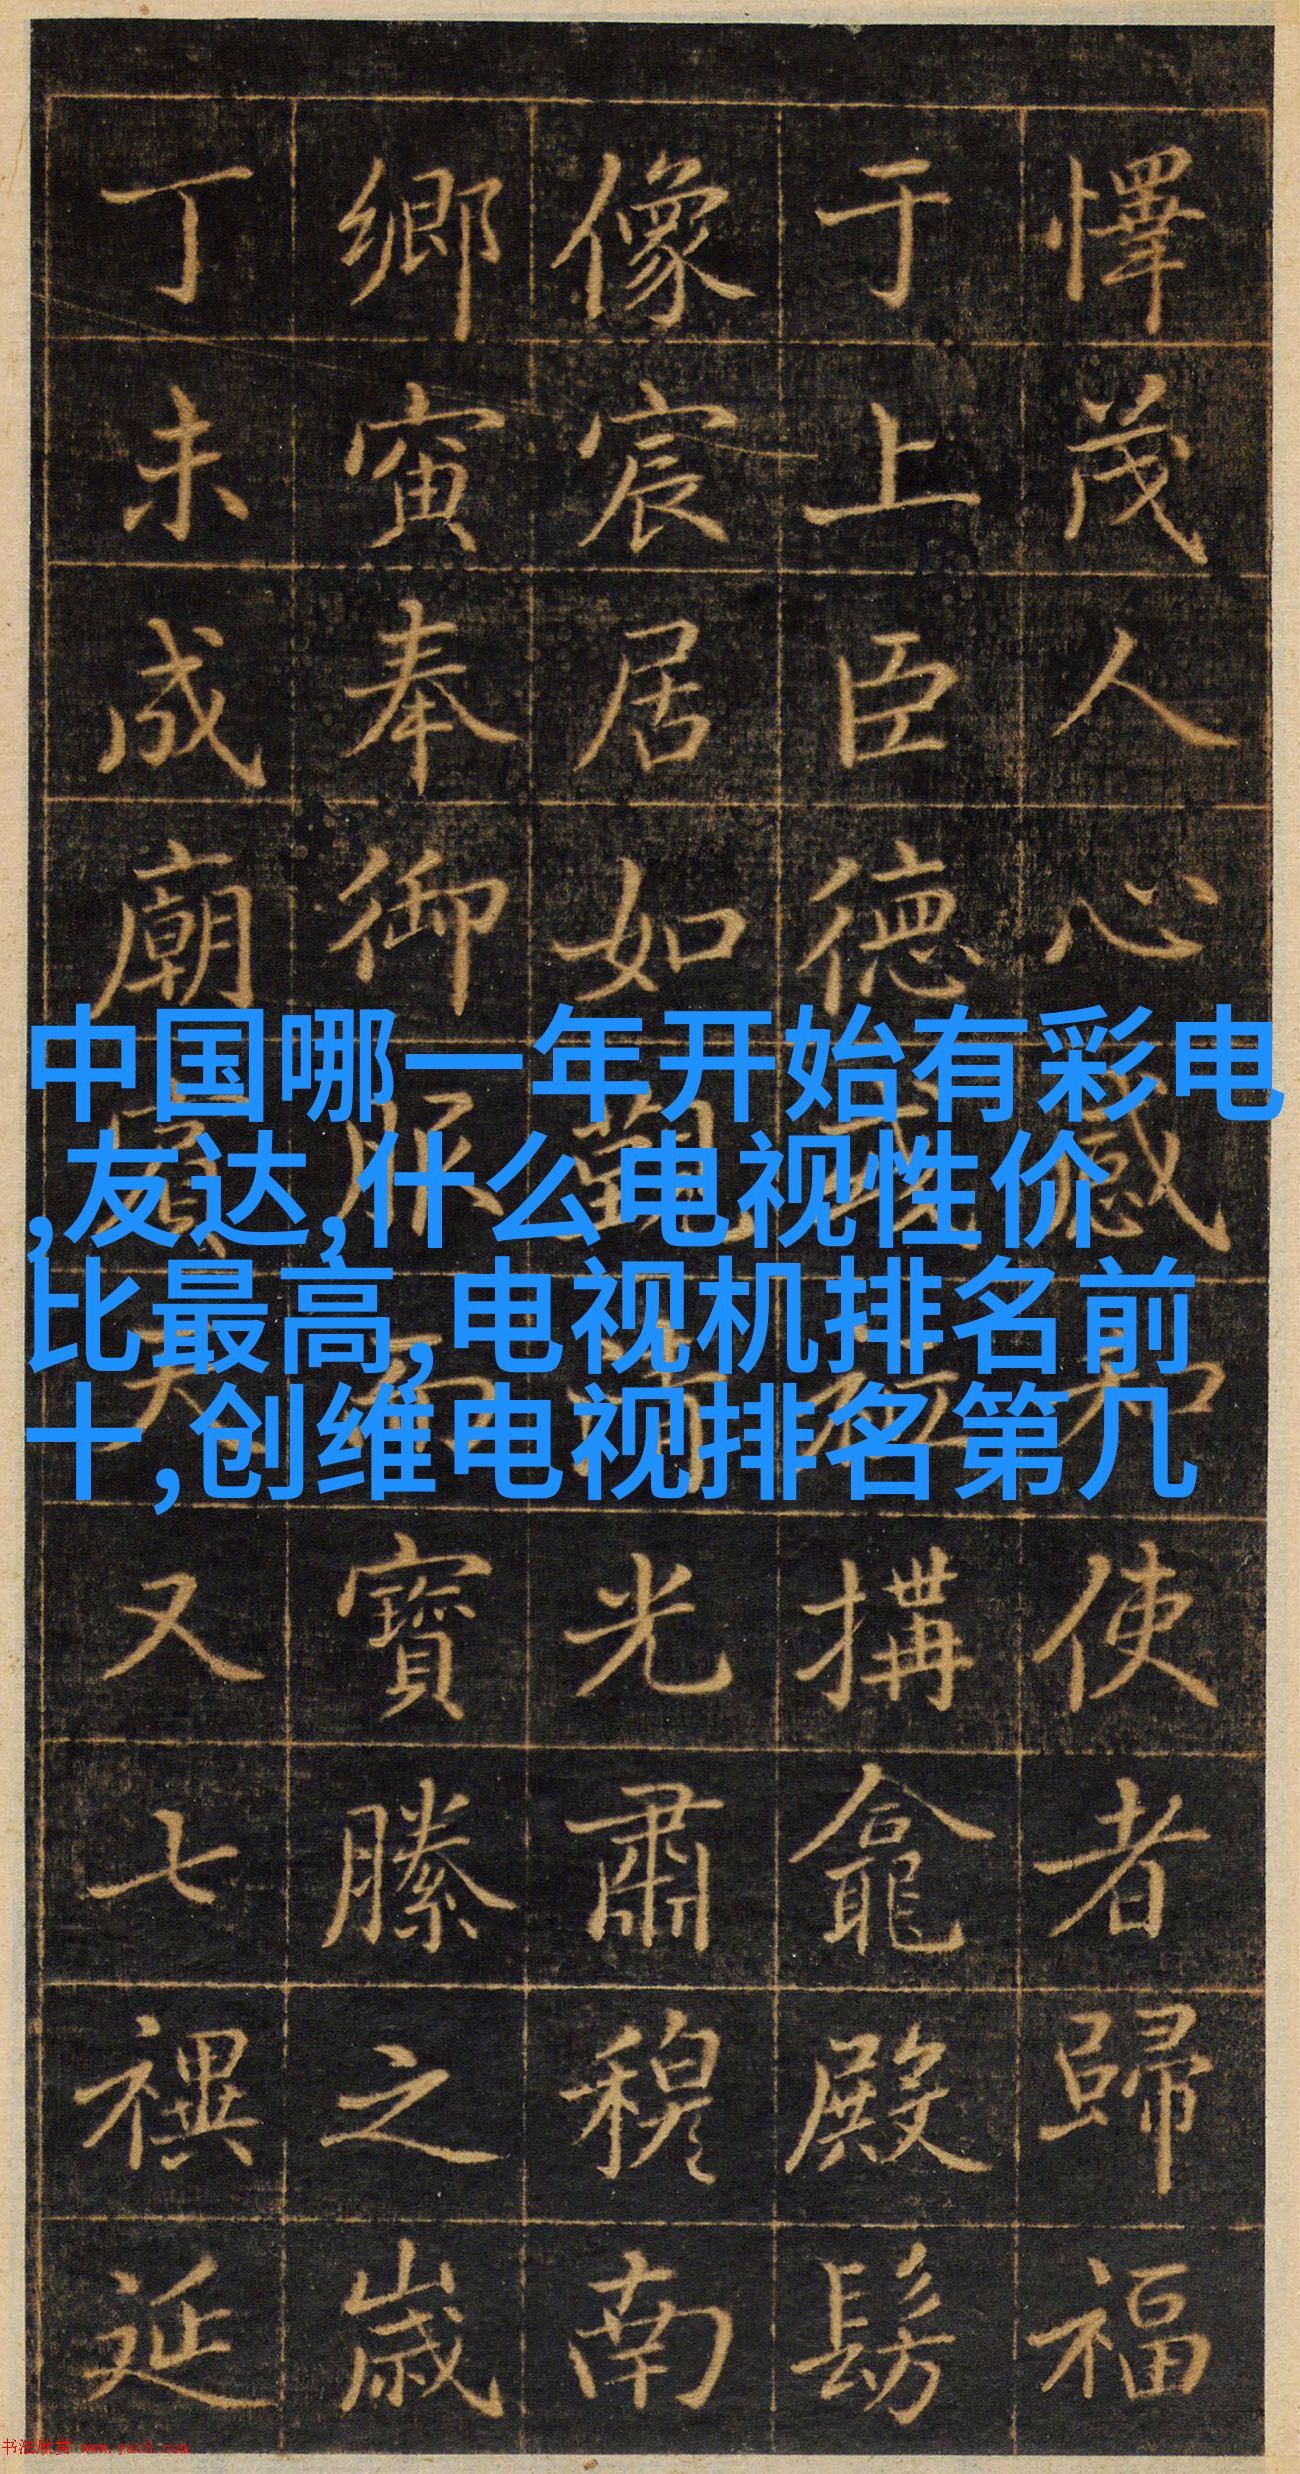 懌茂人心感和使者歸福
于上臣德搆龕殿髣
像宸居如觀清光肅穆南
鄉寅奉御服而寶縢之歲
丁未成廟賓天又七禩延
中国哪一年开始有彩电
,友达,什么电视性价
比最高,电视机排名前
十,创维电视排名第几
书法欣赏 www.yac8.com